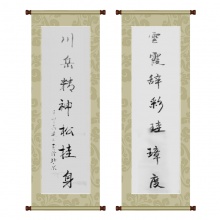 雲霞辭彩珪璋度
川岳精神松桂身